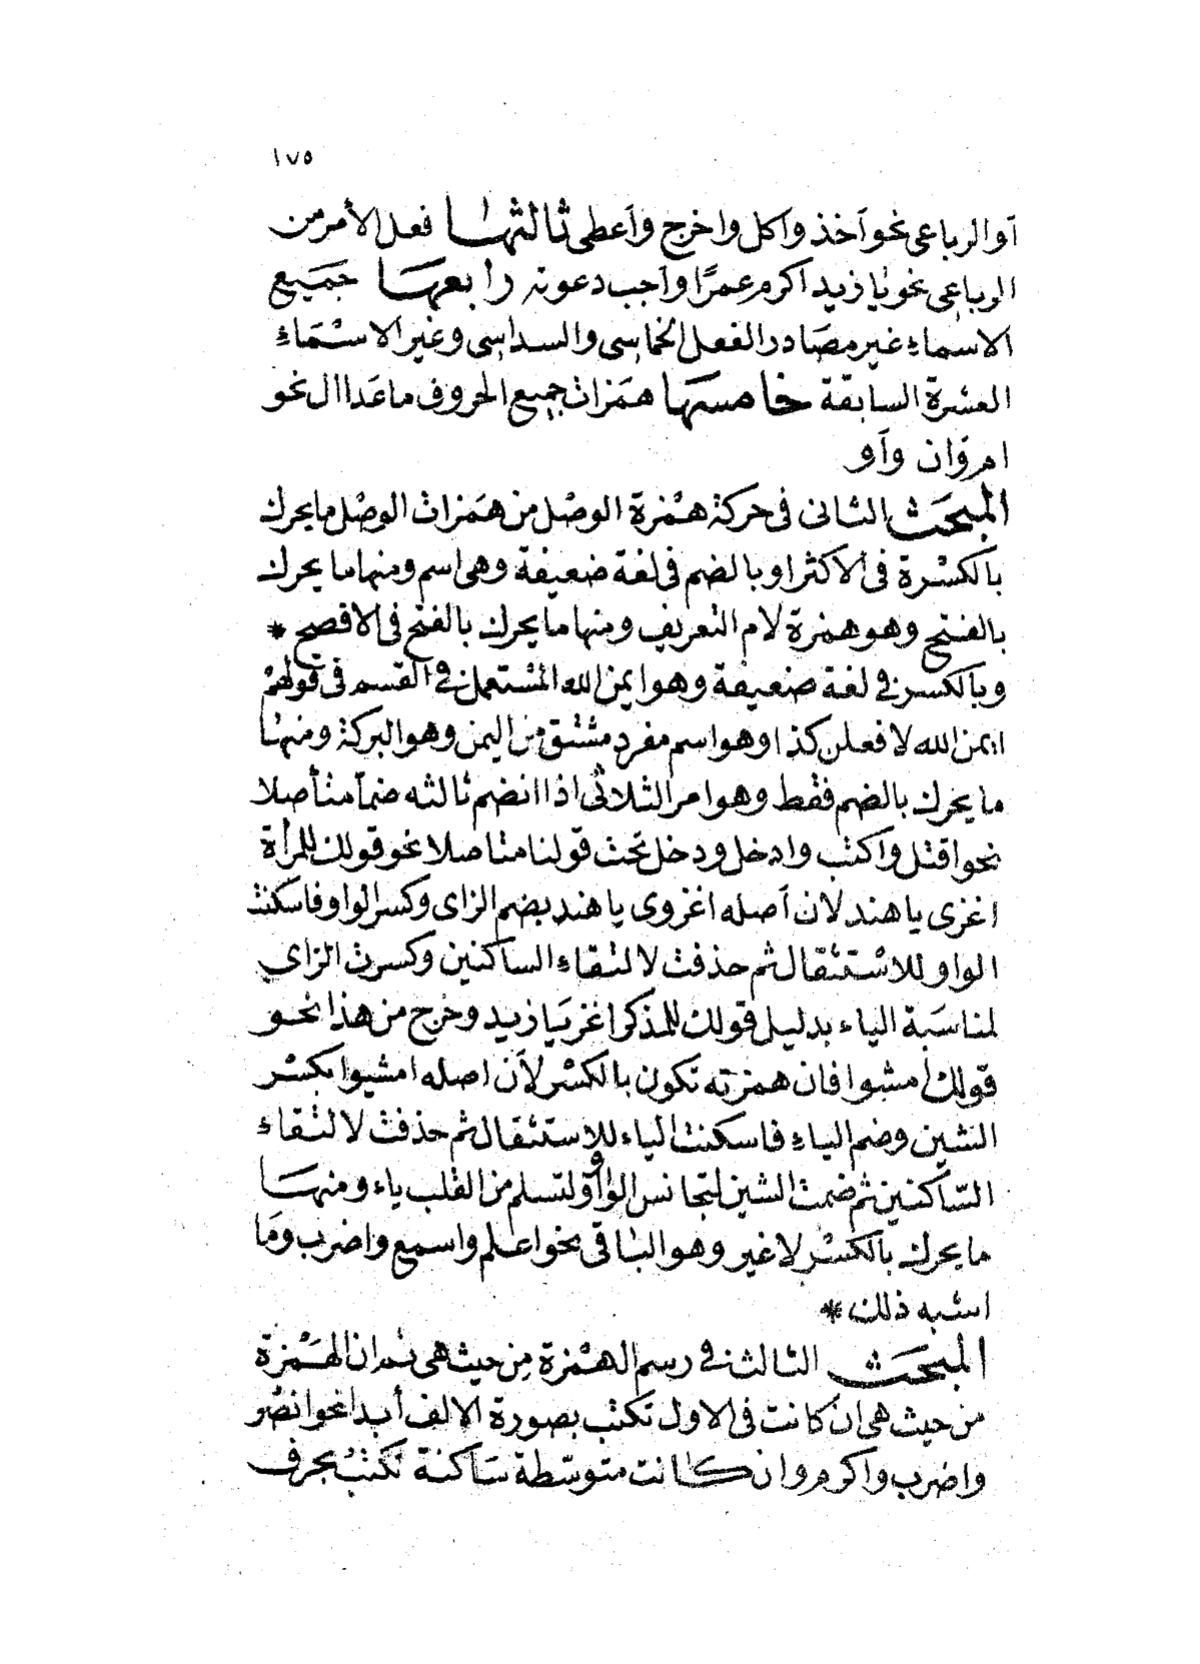 ١٧٥
أو الرباعى نحو أخذ وأكل واخرج وأعطى ثالثها فعل الأمر من
الرباعى نحو يا زيد اكرم عمرًا وأجب دعوته رابعها جميع
الاسماء غير مصادر الفعل الخماسى والسداسى وغير الاسماء
العشرة السابقة خامسها همزات جميع الحروف ما عدا ال نحو
ام وان وأو
المبحث الثانى فى حركة همزة الوصل من همزات الوصل ما يحرك
بالكسرة فى الاكثر او بالضم فى لغة ضعيفة وهى اسم ومنها ما يحرك
بالفتح وهو همزة لام التعريف ومنها ما يحرك بالفتح فى الافصح *
وبالكسر فى لغة ضعيفة وهو ايمن الله المستعمل فى القسم فى قولهم
ايمن الله لافعلن كذا وهو اسم مفرد مشتق من اليمن وهو البركة ومنها
ما يحرك بالضم فقط وهو امر الثلاثى اذا انضم ثالثه ضمًا متأصلا
نحو اقتل واكتب وادخل ودخل تحت قولنا متاصلا نحو قولك للمرأة
اغزى يا هند لان أصله اغزوى يا هند بضم الزاى وكسر الواو فاسكنت
الواو للاستثقال ثم حذفت لالتقاء الساكنين وكسرت الزاى
لمناسبة الياء بدليل قولك للمذكر اغز يا زيد وخرج من هذا نحو
قولك امشوا فان همزته تكون بالكسر لأن اصله امشيوا بكسر
الشين وضم الياء فاسكنت الياء للاستثقال ثم حذفت لالتقاء
الساكنين ثم ضمت الشين لتجانس الواو ولتسلم من القلب ياء ومنها
ما يحرك بالكسر لا غير وهو الباقى نحو اعلم واسمع واضرب وما
اشبه ذلك *
المبحث الثالث فى رسم الهمزة من حيث هى ان الهمزة
من حيث هى ان كانت فى الاول تكتب بصورة الالف أبدا نحو انصر
واضرب واكرم وان كانت متوسطة ساكنة تكتب بحرف